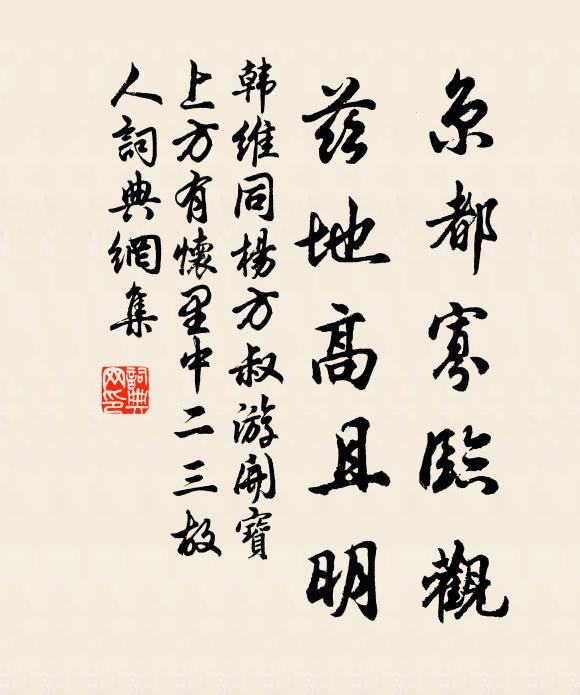 京都寡臨觀
茲地高且明
韩維同楊方叔游開寶
上方有懷里中二三故
人詞典網集
詞典網印